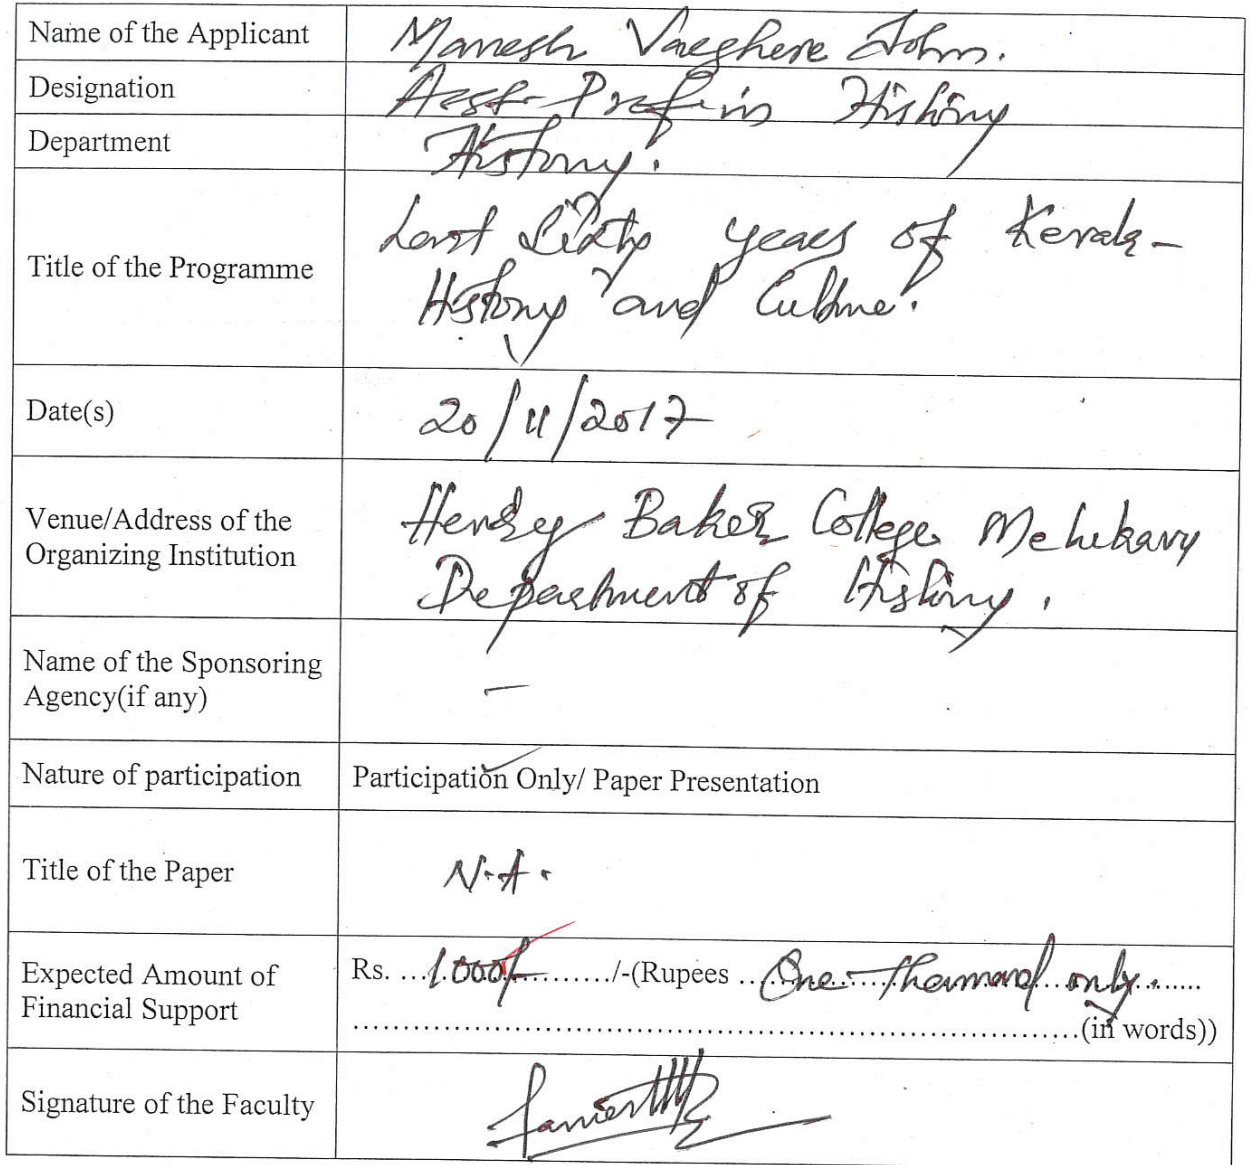 Name of the Applicant Manesh Varghese John.
Designation Asst-Prof in History
Department History.
Title of the Programme Last Sixty years of Kerala-
History and Culture.
Date(s) 20/11/2017
Venue/Address of the
Organizing Institution
Henry Baker College Melukavu
Department of History.
Name of the Sponsoring
Agency(if any)
-
Nature of participation Participation Only/ Paper Presentation
Title of the Paper N.A.
Expected Amount of
Financial Support
Rs. ...1000/-............/-(Rupees ...One Thousand only.......
..................................................................(in words))
Signature of the Faculty